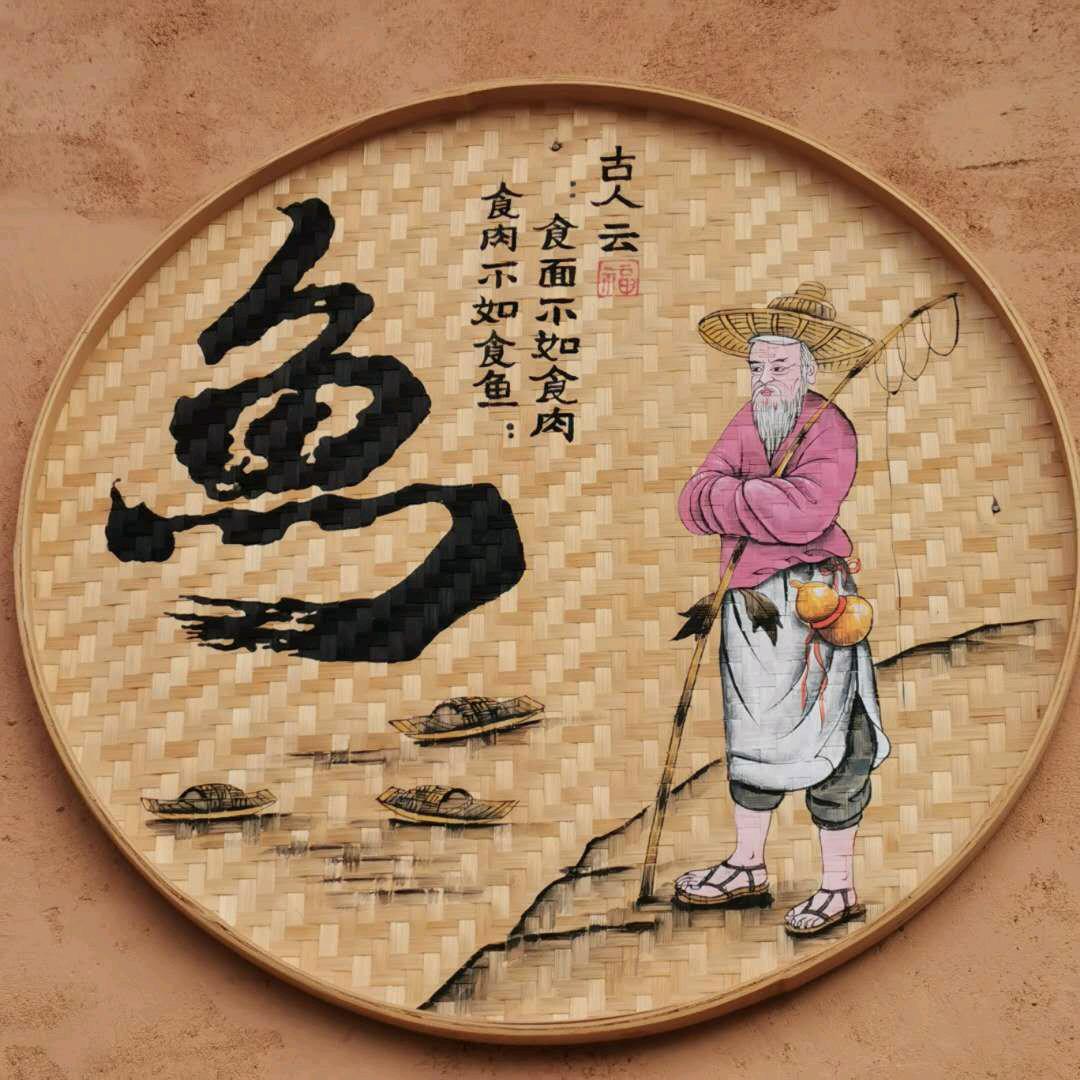 古人云
：食面不如食肉
食肉不如食鱼：
福
鱼